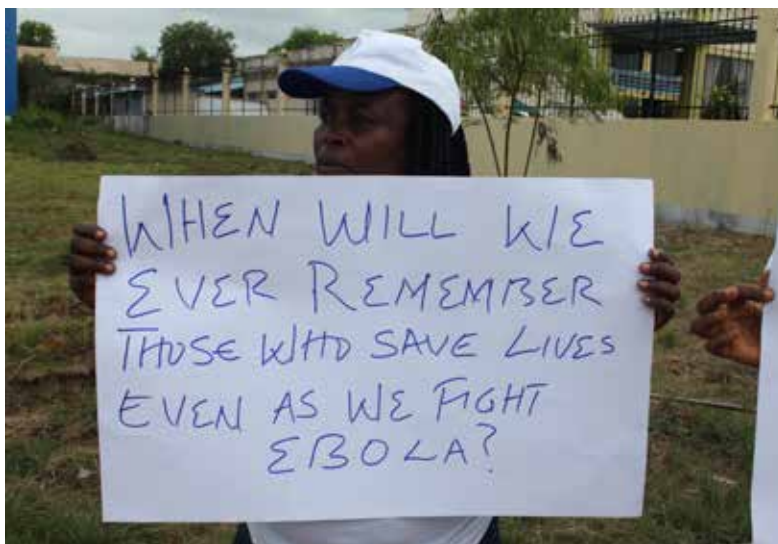 WHEN WILL WE
EVER REMEMBER
THOSE WHO SAVE LIVES
EVEN AS WE FIGHT
EBOLA?